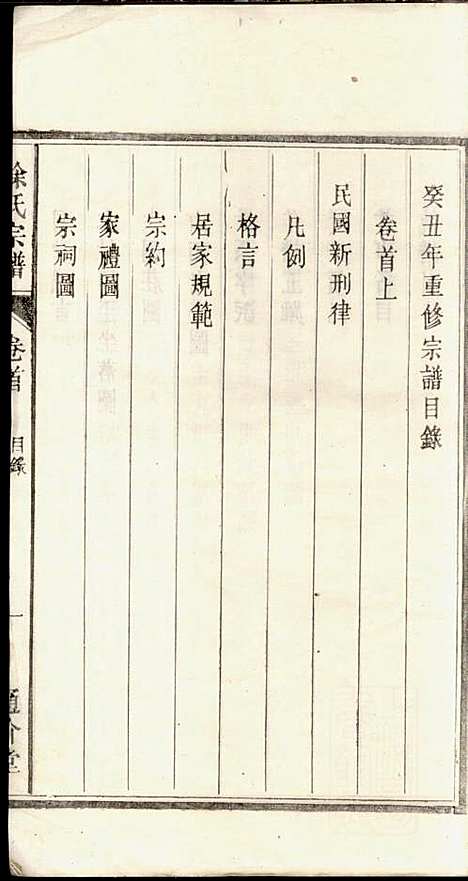 癸丑年重修宗譜目錄
卷首上
民國新刑律
凡例
格言
居家規範
宗約
家禮圖
宗祠圖
徐氏宗譜
卷首
目錄
一
通介堂